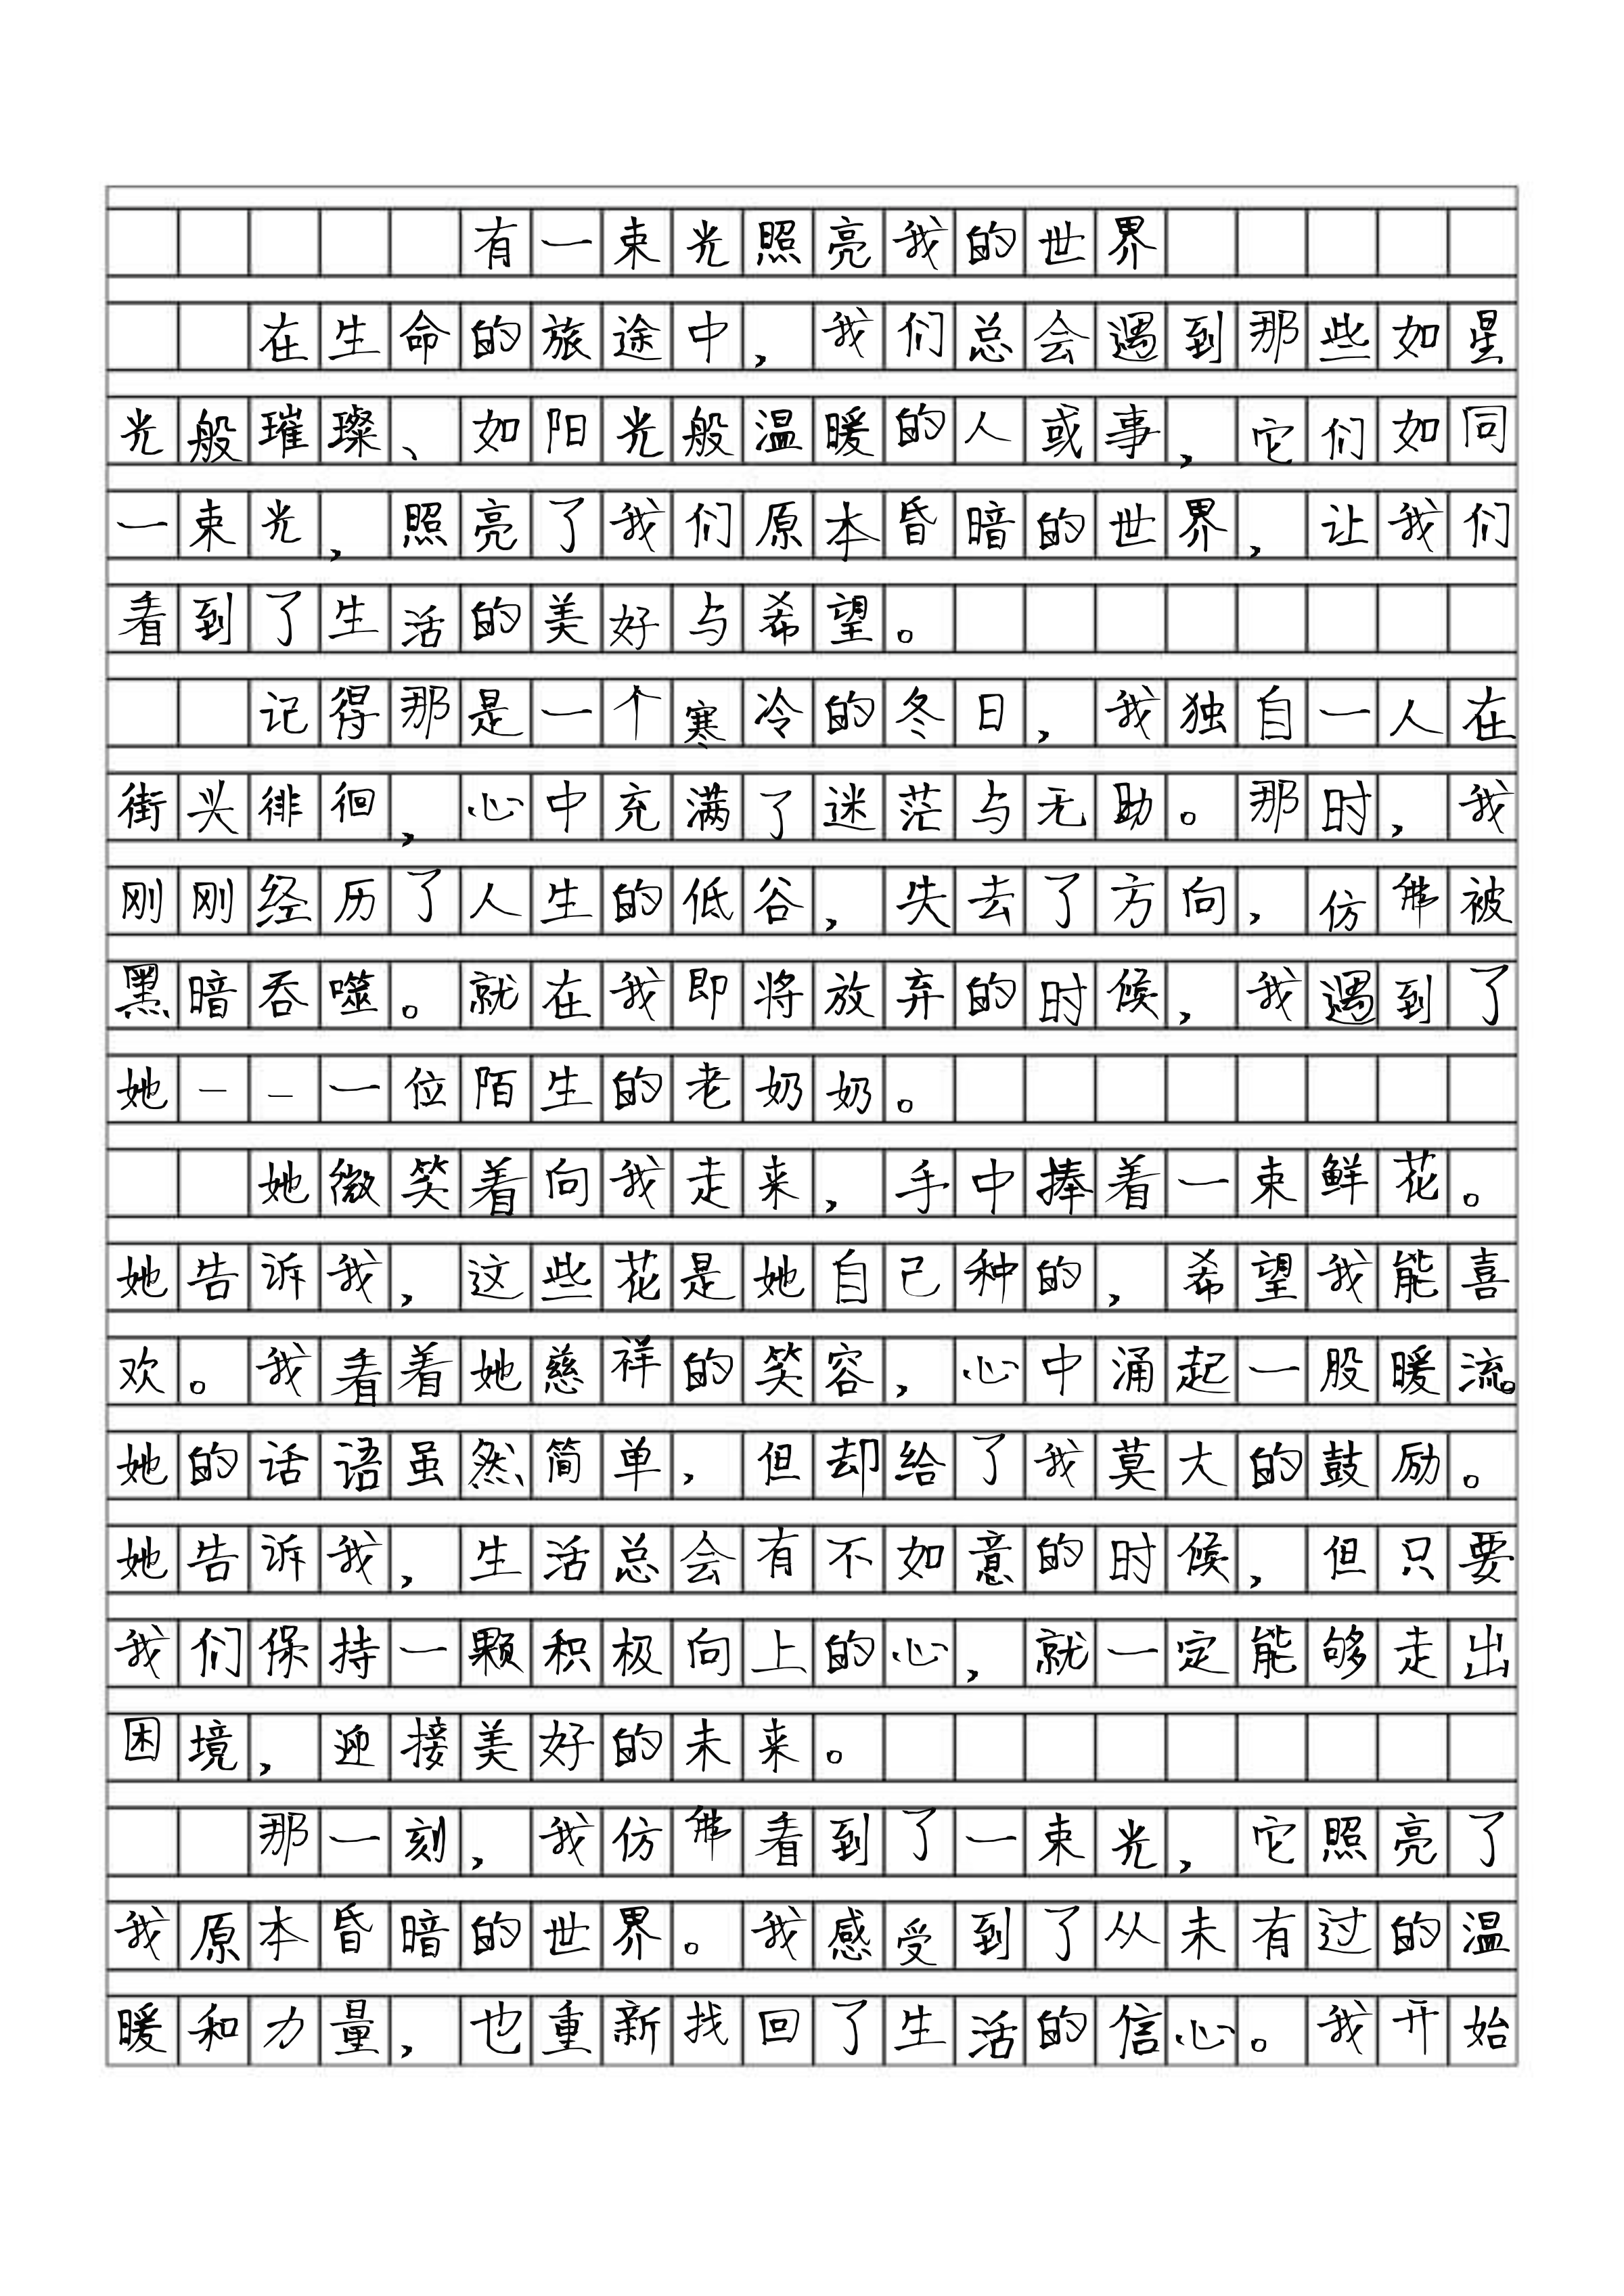 有一束光照亮我的世界
在生命的旅途中，我们总会遇到那些如星
光般璀璨、如阳光般温暖的人或事，它们如同
一束光，照亮了我们原本昏暗的世界，让我们
看到了生活的美好与希望。
记得那是一个寒冷的冬日，我独自一人在
街头徘徊，心中充满了迷茫与无助。那时，我
刚刚经历了人生的低谷，失去了方向，仿佛被
黑暗吞噬。就在我即将放弃的时候，我遇到了
她——一位陌生的老奶奶。
她微笑着向我走来，手中捧着一束鲜花。
她告诉我，这些花是她自己种的，希望我能喜
欢。我看着她慈祥的笑容，心中涌起一股暖流。
她的话语虽然简单，但却给了我莫大的鼓励。
她告诉我，生活总会有不如意的时候，但只要
我们保持一颗积极向上的心，就一定能够走出
困境，迎接美好的未来。
那一刻，我仿佛看到了一束光，它照亮了
我原本昏暗的世界。我感受到了从未有过的温
暖和力量，也重新找回了生活的信心。我开始